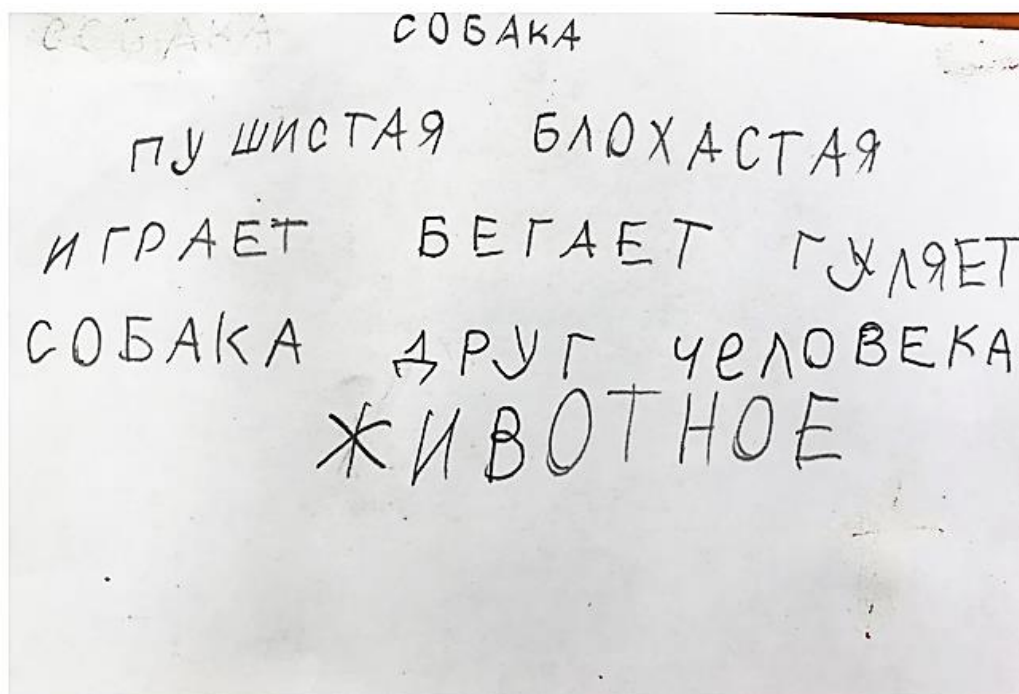 СОБАКА СОБАКА
ПУШИСТАЯ БЛОХАСТАЯ
ИГРАЕТ БЕГАЕТ ГУЛЯЕТ
СОБАКА ДРУГ ЧеЛОВЕКА
ЖИВОТНОЕ